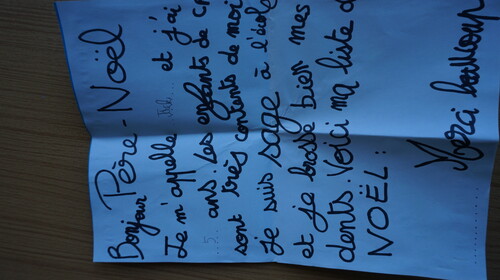 Bonjour Père-Noël
Je m'appelle ... et j'ai
..5.. ans. Les enfants de
sont très contents de moi
Je suis sage à l'école
et je brosse bien mes
dents. Voici ma liste d
NOËL:
Merci beaucoup